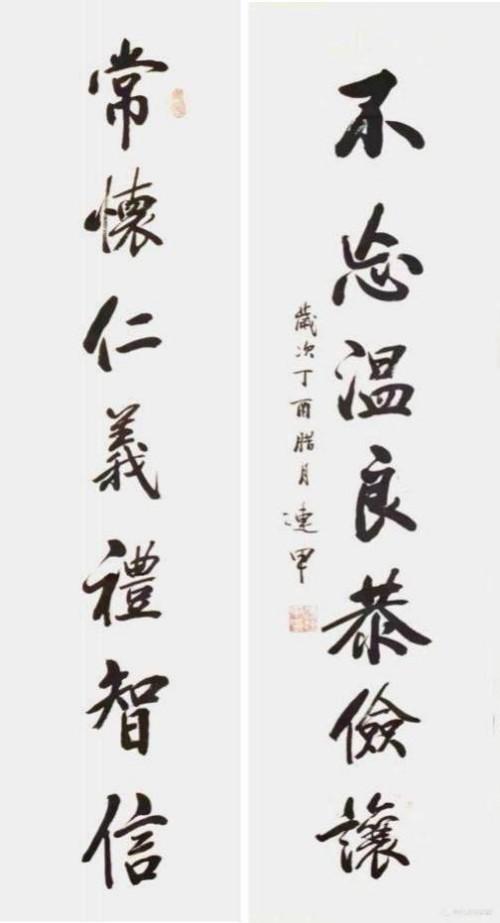 不忘温良恭儉讓
歲次丁酉腊月
連甲
常懷仁義禮智信